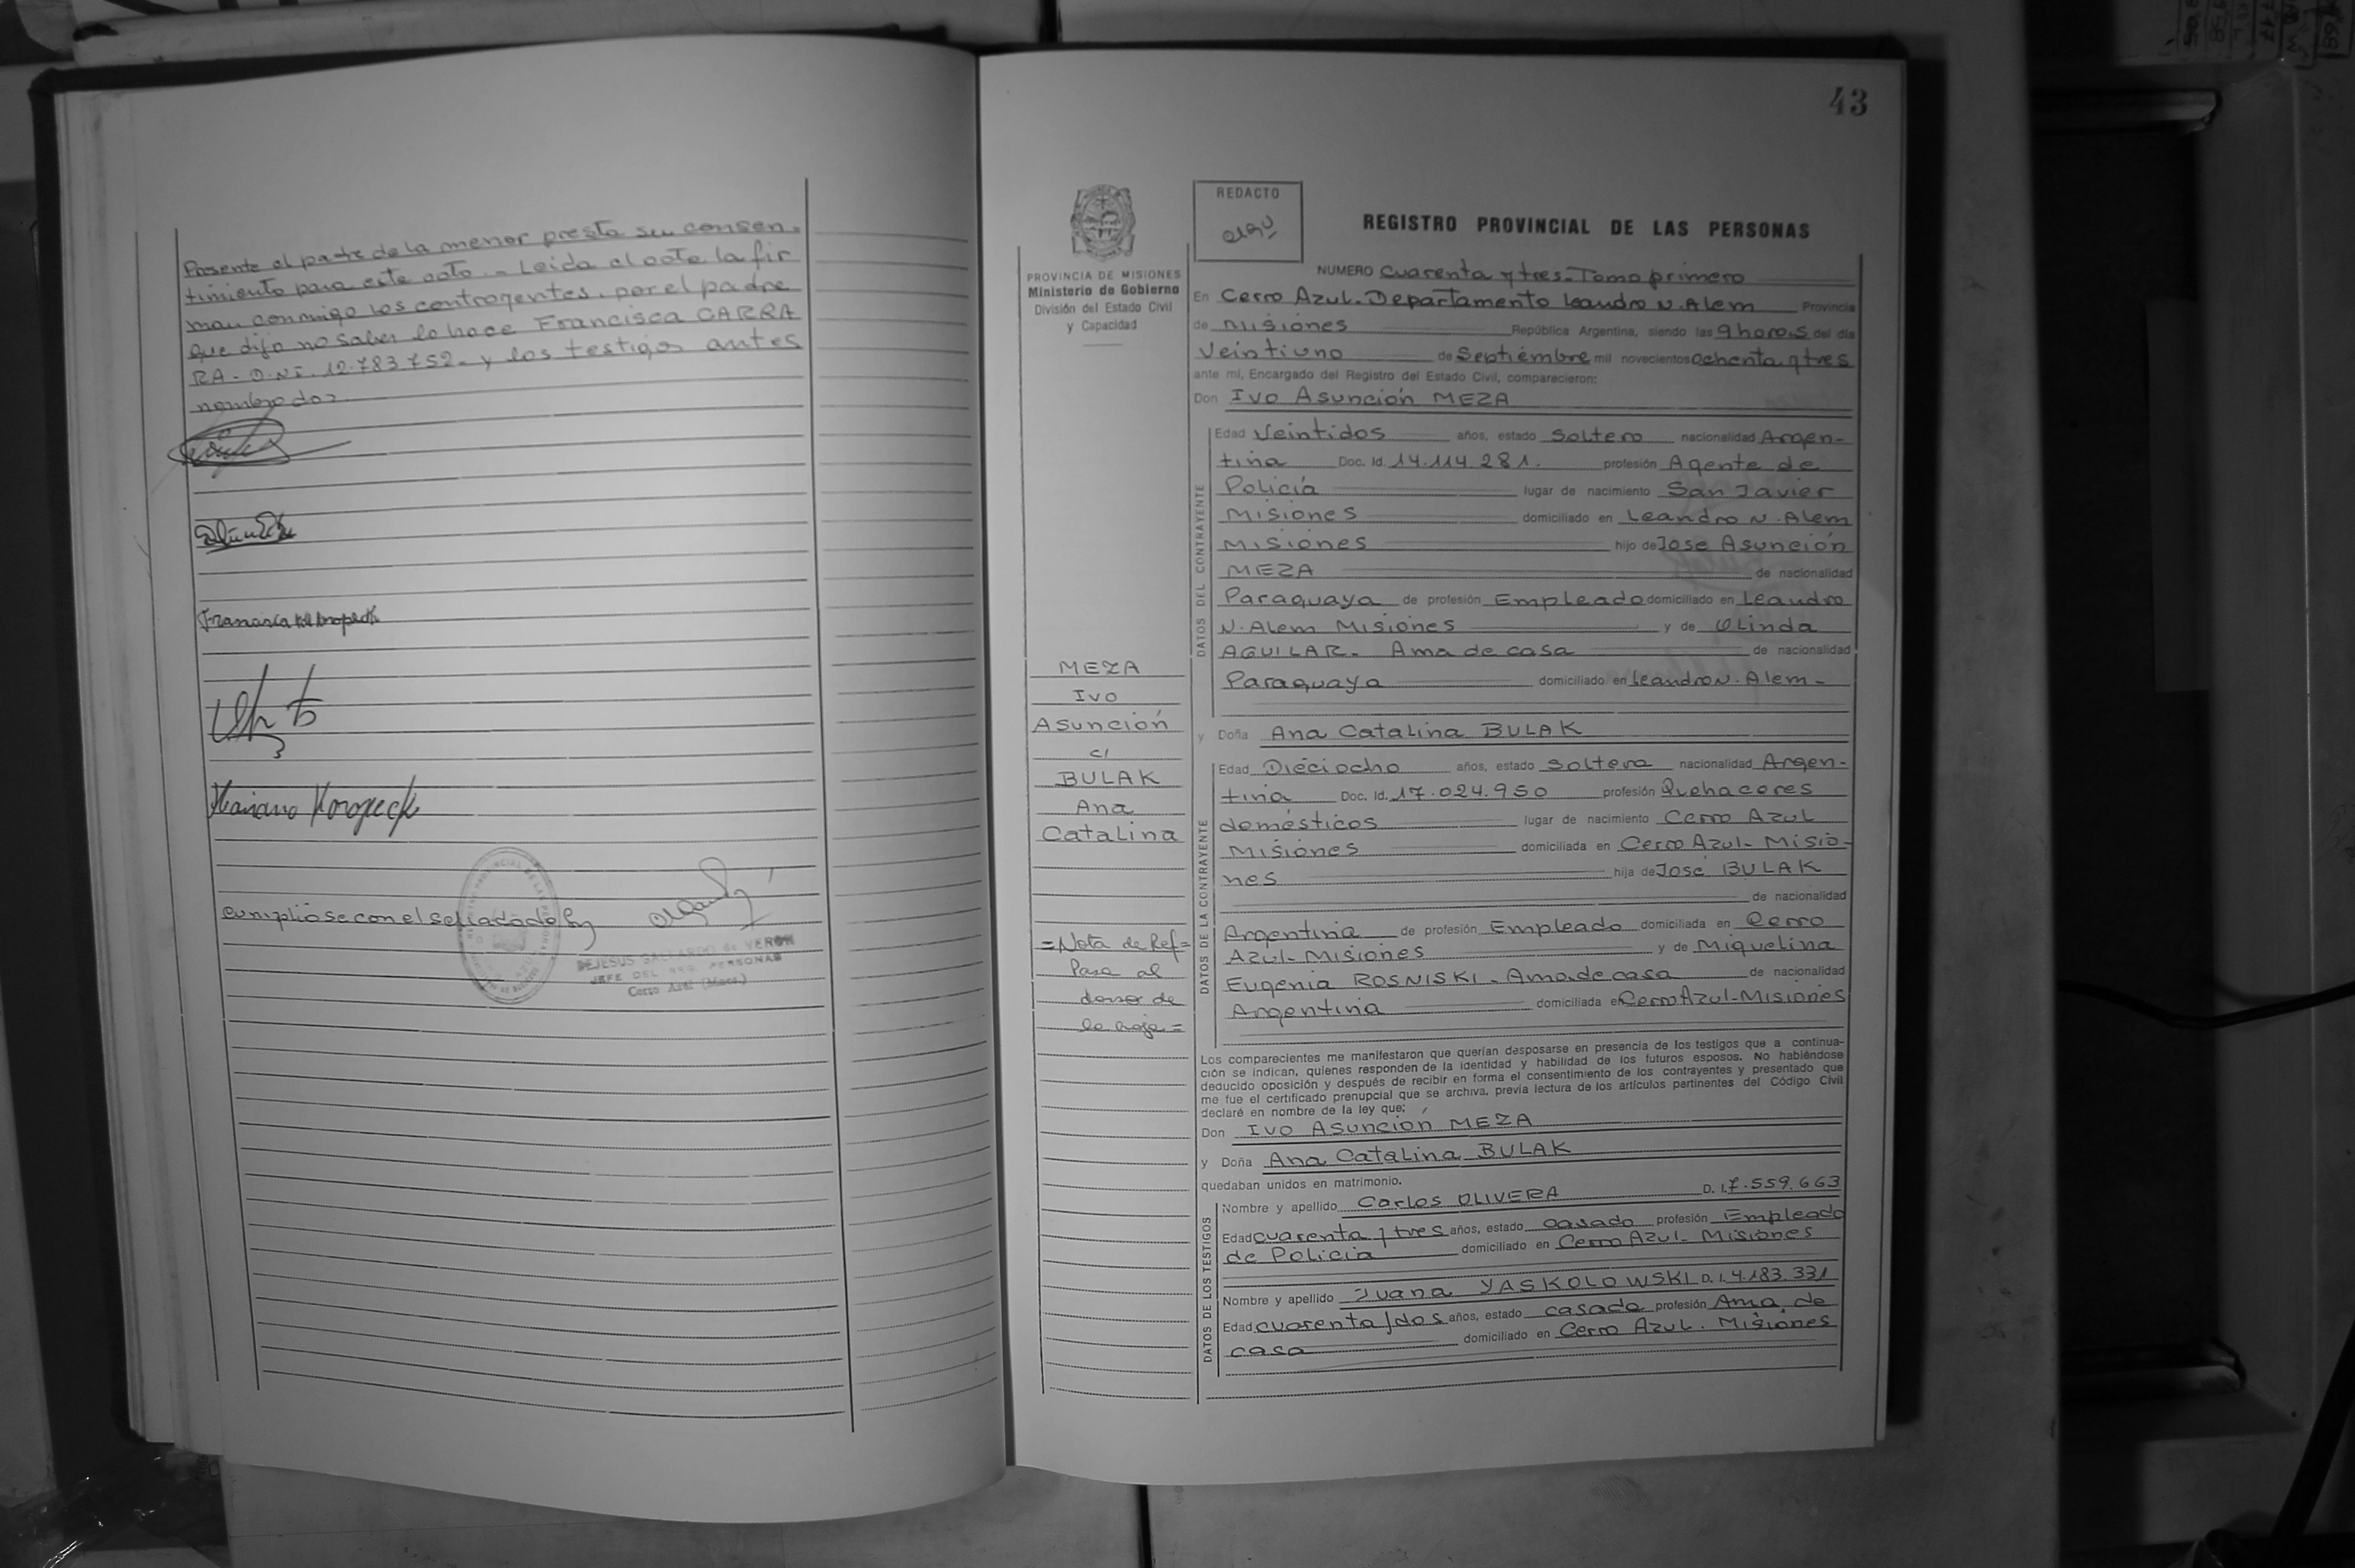 Presente el padre de la menor presta su consen-
timiento para este acto. - Leida el acta la fir
man conmigo los contrayentes, por el padre
que dijo no saber lo hace Francisca CARRA
RA - D.N.I. 12.783.752 - y los testigos antes
nombrados
Francisca
Mariano Koropeck
cumplióse con el sellado de ley
DEJESUS GALLARDO de VERON
JEFE DEL REG. PERSONAS
Cerro Azul (Mnes.)
43
PROVINCIA DE MISIONES
Ministerio de Gobierno
División del Estado Civil
y Capacidad
MEZA
Ivo
Asunción
c/
BULAK
Ana
Catalina
=Nota de Ref=
Pasa al
dorso de
la hoja=
REDACTO
REGISTRO PROVINCIAL DE LAS PERSONAS
NUMERO Cuarenta y tres - Tomo primero
En Cerro Azul - Departamento Leandro N. Alem Provincia
de Misiones República Argentina, siendo las 9 horas del día
Veintiuno de Septiembre mil novecientos ochenta y tres
ante mí, Encargado del Registro del Estado Civil, comparecieron:
Don Ivo Asunción MEZA
DATOS DEL CONTRAYENTE
Edad Veintidos años, estado Soltero nacionalidad Argen-
tina Doc. Id. 14.114.281. profesión Agente de
Policía lugar de nacimiento San Javier
Misiones domiciliado en Leandro N. Alem
Misiones hijo de Jose Asunción
MEZA de nacionalidad
Paraguaya de profesión Empleado domiciliado en Leandro
N. Alem Misiones y de Olinda
AGUILAR - Ama de casa de nacionalidad
Paraguaya domiciliado en Leandro N. Alem -
y Doña Ana Catalina BULAK
DATOS DE LA CONTRAYENTE
Edad Dieciocho años, estado Soltera nacionalidad Argen-
tina Doc. Id. 17.024.950 profesión Quehaceres
domésticos lugar de nacimiento Cerro Azul
Misiones domiciliada en Cerro Azul - Misio-
nes hija de José BULAK
de nacionalidad
Argentina de profesión Empleado domiciliada en Cerro
Azul - Misiones y de Miguelina
Eugenia ROSNISKI - Ama de casa de nacionalidad
Argentina domiciliada en Cerro Azul - Misiones
Los comparecientes me manifestaron que querían desposarse en presencia de los testigos que a continua-
ción se indican, quienes responden de la identidad y habilidad de los futuros esposos. No habiéndose
deducido oposición y después de recibir en forma el consentimiento de los contrayentes y presentado que
me fue el certificado prenupcial que se archiva, previa lectura de los artículos pertinentes del Código Civil
declaré en nombre de la ley que:
Don Ivo Asunción MEZA
y Doña Ana Catalina BULAK
quedaban unidos en matrimonio.
DATOS DE LOS TESTIGOS
Nombre y apellido Carlos OLIVERA D. I. 7.559.663
Edad cuarenta y tres años, estado casado profesión Empleado
de Policia domiciliado en Cerro Azul - Misiones
Nombre y apellido Juana YASKOLOWSKI D. I. 4.183.331
Edad cuarenta y dos años, estado casada profesión Ama de
casa domiciliado en Cerro Azul - Misiones